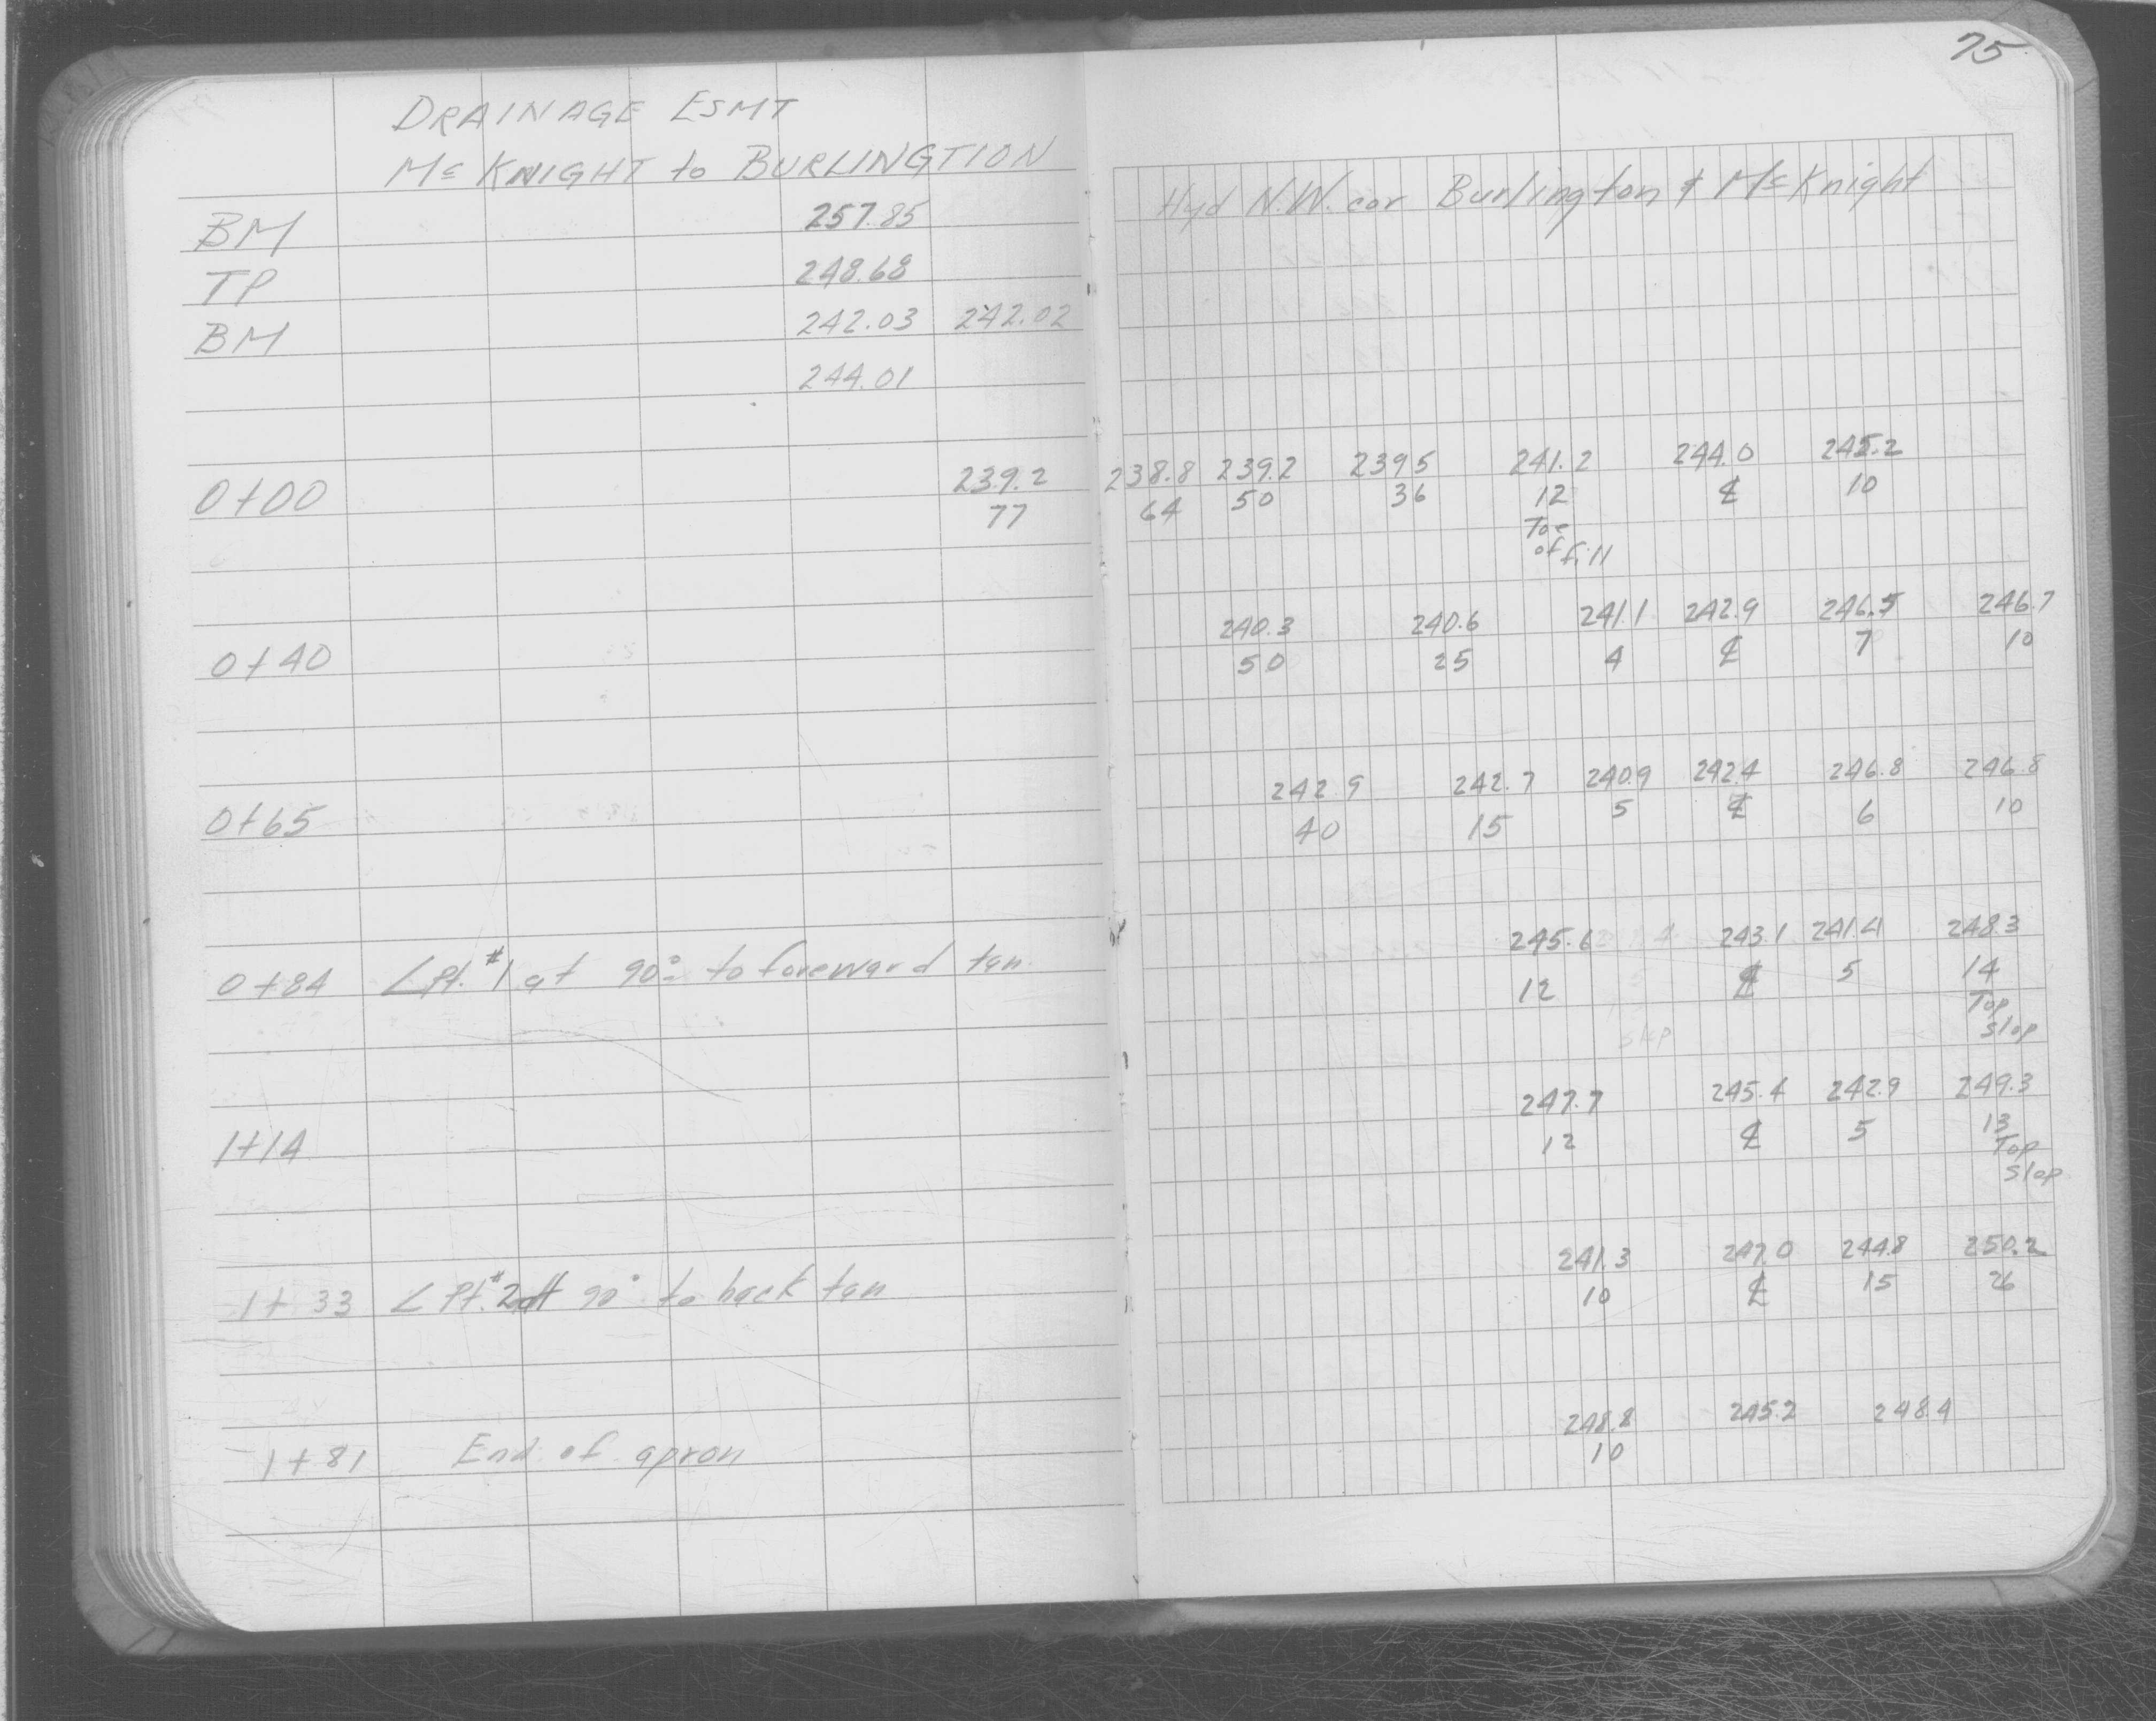 75
DRAINAGE ESMT
Mc KNIGHT to BURLINGTION
Hyd N.W. cor Burlington & McKnight
BM 257.85
TP 248.68
BM 242.03 242.02
244.01
239.2 238.8 239.2 239.5 241.2 244.0 245.2
0+00 77 64 50 36 12 ℄ 10
Toe
of fill
240.3 240.6 241.1 242.9 246.5 246.7
0+40 50 25 4 ℄ 7 10
242.9 242.7 240.9 242.4 246.8 246.8
0+65 40 15 5 ℄ 6 10
245.6 243.1 241.4 248.3
0+84 ∠Pt. #1 at 90° to foreward tan. 12 ℄ 5 14
Top
Slop
247.7 245.4 242.9 249.3
1+14 12 ℄ 5 13
Top
Slop
241.3 247.0 244.8 250.2
1+33 ∠Pt. #2 at 90° to back tan 10 ℄ 15 26
248.8 245.2 248.4
1+81 End of apron 10